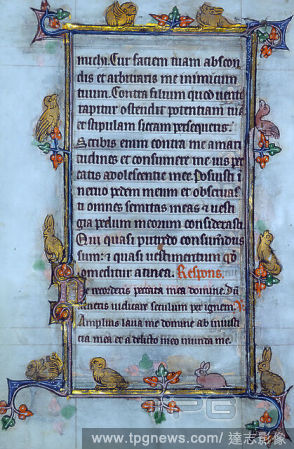 michi. Cur faciem tuam abscon
dis et arbitraris me inimicum
tuum. Contra folium quod vento
rapitur ostendis potentiam tuā
et stipulam siccam persequeris.
Scribis enim contra me amari
tudines et consumere me vis pec
catis adolescentie mee. Posuisti i
nervo pedem meum et observas
ti omnes semitas meas et vesti
gia pedum meorum considerasti.
Qui quasi putredo consumēdus
sum: et quasi vestimentum qd
comeditur a tinea. Respons.
Ne recorderis peccata mea domine. Dū
veneris iudicare seculum per ignem.
Amplius lava me domine ab iniusti
cia mea et a delicto meo munda me.
TPG
www.tpgnews.com / 達志影像